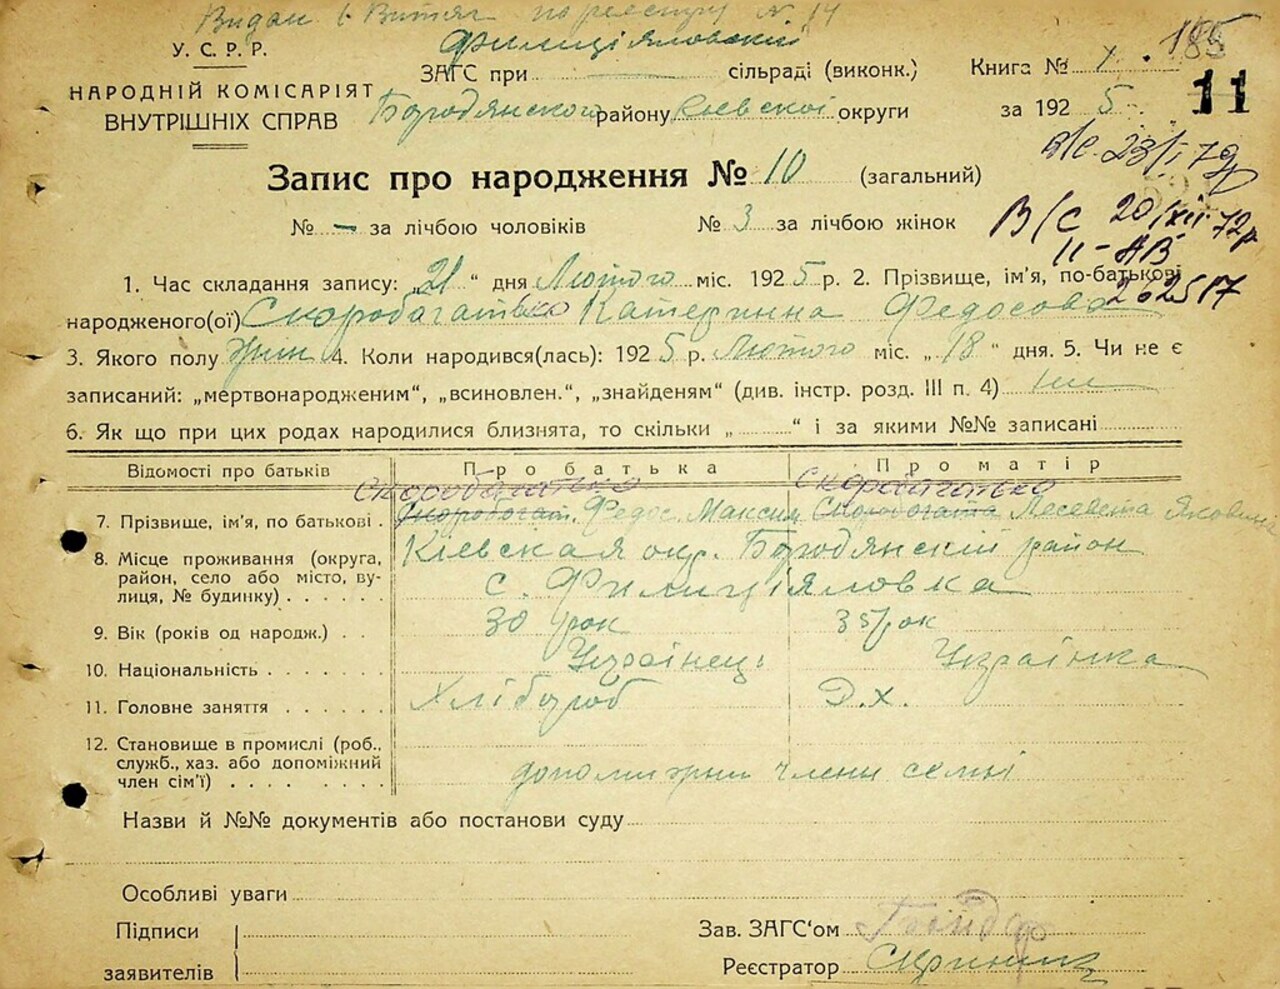 Видан Витяг по реєстру № 14
У. С. Р. Р.
Филиціяловскій
ЗАГС при сільраді (виконк.) Книга №
НАРОДНІЙ КОМІСАРІЯТ
ВНУТРІШНІХ СПРАВ
Бородянского району Киевскоі округи за 1925 11
в/с 23/I 79
Запис про народження № 10 (загальний)
№ – за лічбою чоловіків № 3 за лічбою жінок
В/С 20/XII 72р
II-АБ
262517
1. Час складання запису: „21“ дня Лютого міс. 1925 р. 2. Прізвище, ім'я, по-батькові
народженого(ої) Скоробагатько Катерина Федосова
3. Якого полу жин 4. Коли народився(лась): 1925 р. Лютого міс. „18“ дня. 5. Чи не є
записаний: „мертвонародженим“, „всиновлен.“, „знайденям“ (див. інстр. розд. III п. 4) ни
6. Як що при цих родах народилися близнята, то скільки „ “ і за якими №№ записані
Відомості про батьків Про батька Про матір
Скоробагатько Скоробагатько
7. Прізвище, ім'я, по батькові . Скоробагат. Федос. Максим Скоробогата Лесевета Яковина
8. Місце проживання (округа, Кіевская окр. Бородянскій район
район, село або місто, ву-
лиця, № будинку) . . . . . . с. Филиціяловка
9. Вік (років од народж.) . . 30 рок 35 рок
10. Національність . . . . . . . Українець Українка
11. Головне заняття . . . . . . Хлібороб Д.Х.
12. Становище в промислі (роб.,
служб., хаз. або допоміжний
член сім'ї) . . . . . . . . . допомижни члени семьі
Назви й №№ документів або постанови суду
Особливі уваги
Підписи Зав. ЗАГС'ом
заявителів Реєстратор